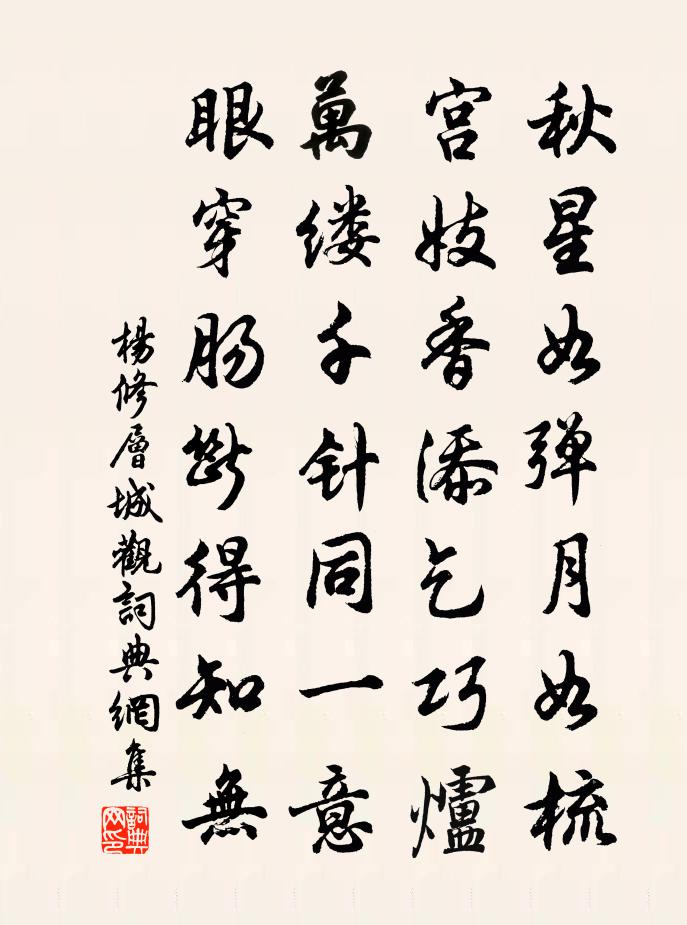 秋星如弹月如梳
宫妓香添乞巧爐
萬缕千针同一意
眼穿肠断得知無
楊修層城觀詞典網集
詞典网印